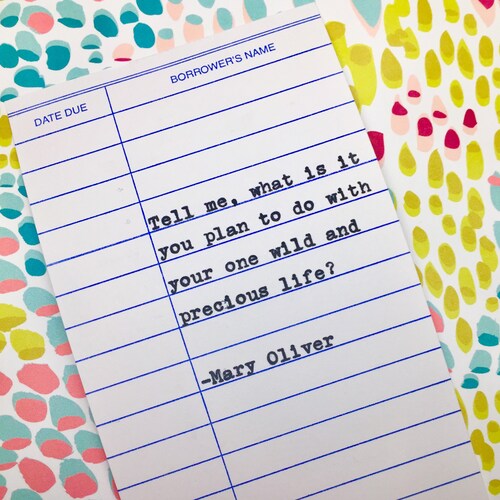 DATE DUE
BORROWER'S NAME
Tell me, what is it
you plan to do with
your one wild and
precious life?
-Mary Oliver